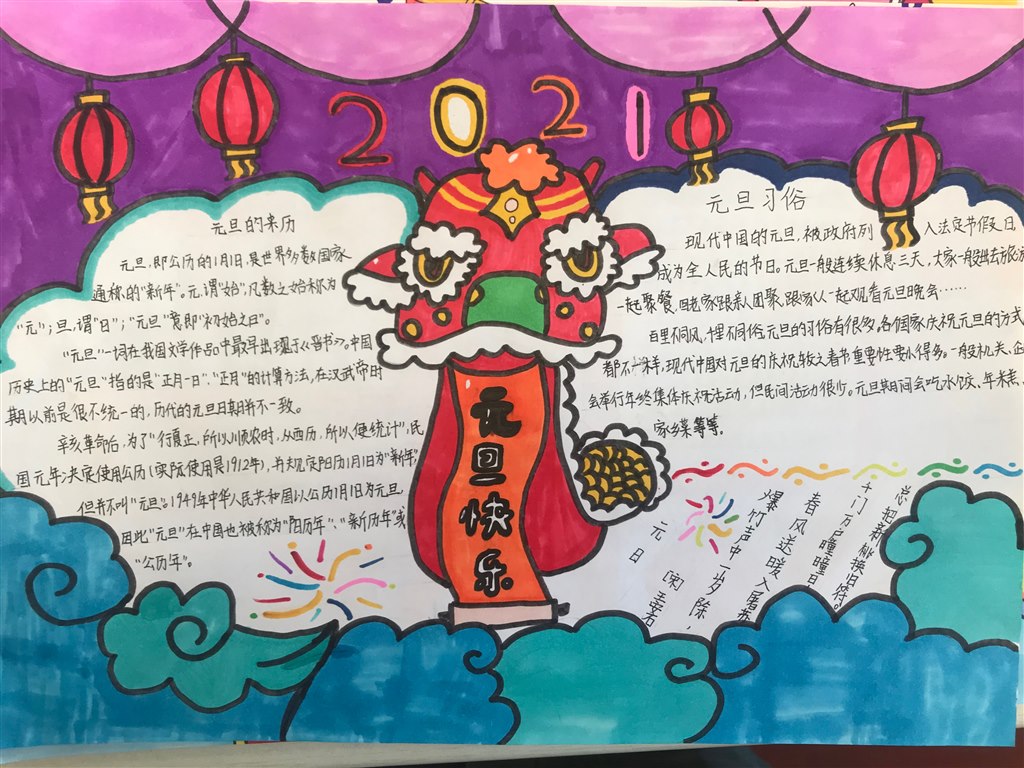 2021
元旦的来历
元旦,即公历的1月1日,是世界多数国家
通称的“新年”。元,谓“始”,凡数之始称为
“元”;旦,谓“日”;“元旦”意即“初始之日”。
“元旦”一词在我国文学作品中最早出现于《晋书》。中国
历史上的“元旦”指的是“正月一日”、“正月”的计算方法,在汉武帝时
期以前是很不统一的,历代的元旦日期并不一致。
辛亥革命后,为了“行夏正,所以顺农时,从西历,所以便统计”,民
国元年决定使用公历(实际使用是1912年),并规定阳历1月1日为“新年”,
但并不叫“元旦”。1949年中华人民共和国以公历1月1日为元旦,
因此“元旦”在中国也被称为“阳历年”、“新历年”或
“公历年”。
元旦快乐
元旦习俗
现代中国的元旦,被政府列入法定节假日,
成为全人民的节日。元旦一般连续休息三天,大家一般出去旅游
一起聚餐,回老家跟亲人团聚,跟家人一起观看元旦晚会……
百里不同风,十里不同俗,元旦的习俗有很多。各个国家庆祝元旦的方式
都不一样,现代中国对元旦的庆祝较之春节重要性要小得多。一般机关、企
会举行年终集体庆祝活动,但民间活动很少。元旦期间会吃水饺、年米糕、
家乡菜等等。
元日
(宋)王安石
爆竹声中一岁除,
春风送暖入屠苏
千门万户曈曈日
总把新桃换旧符。